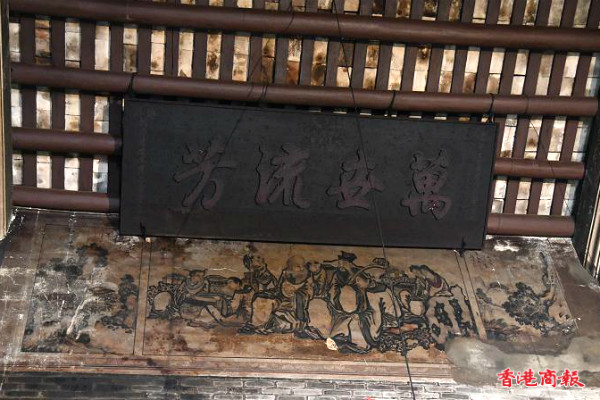 萬世流芳
香港商報